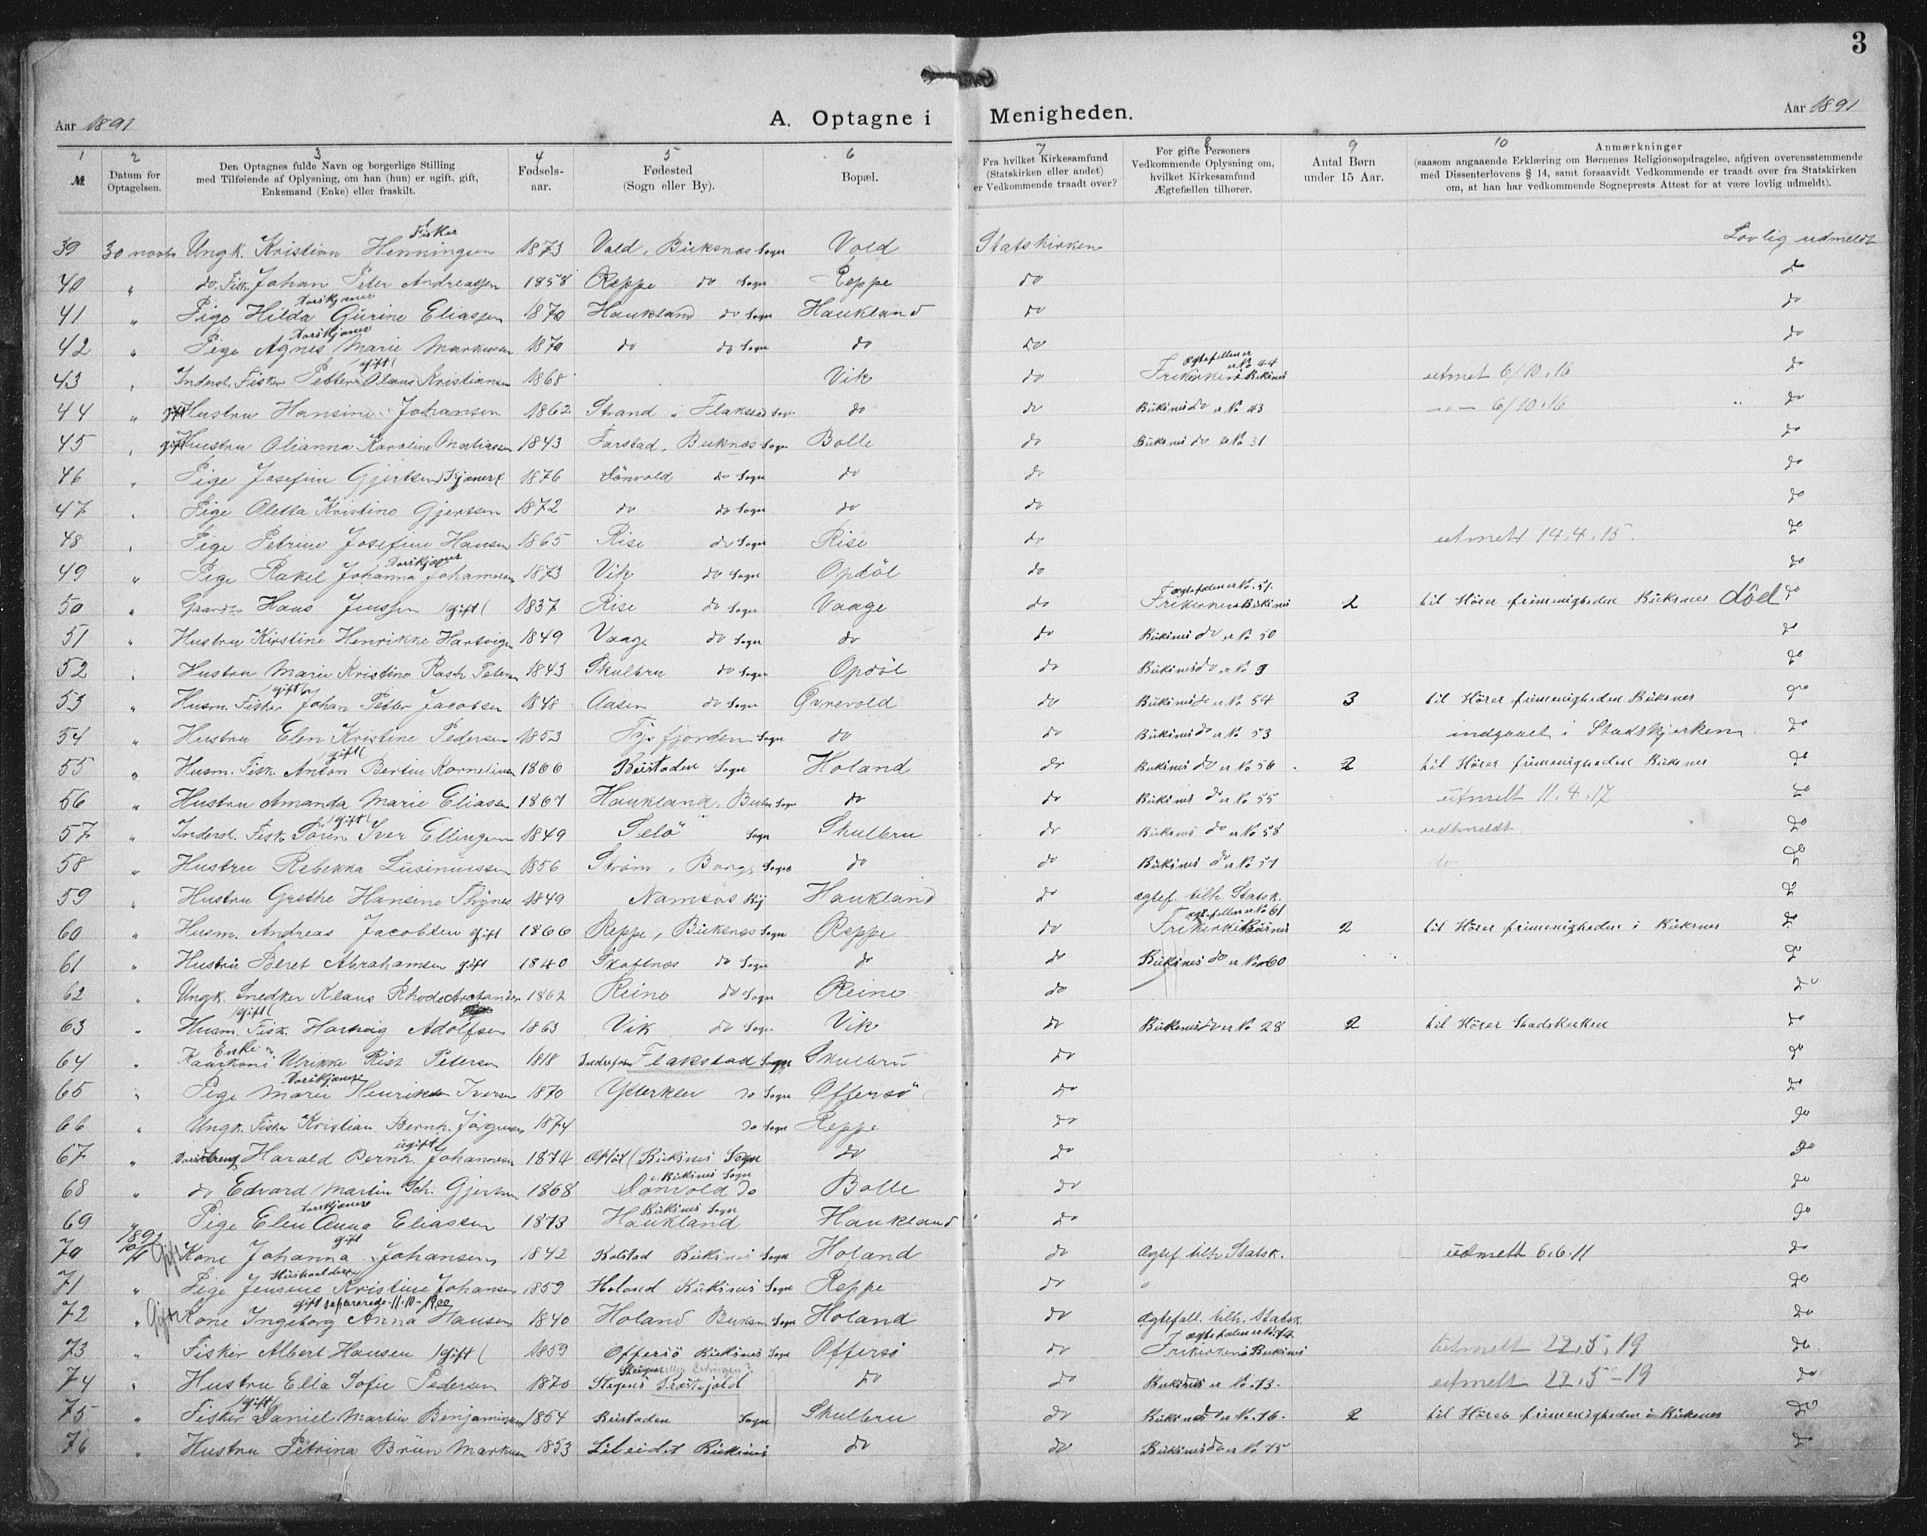 3
Aar 1891
A. Optagne i Menigheden.
Aar 1891
1 2 3 4 5 6 7 8 9 10
№
Datum for Optagelsen.
Den Optagnes fulde Navn og borgerlige Stilling
med Tilføiende af Oplysning, om han (hun) er ugift, gift,
Enkemand (Enke) eller fraskilt.
Fødsels-
aar.
Fødested
(Sogn eller By).
Bopæl.
Fra hvilket Kirkesamfund
(Statskirken eller andet)
er Vedkommende traadt over?
For gifte Personers
Vedkommende Oplysning om,
hvilket Kirkesamfund
Ægtefællen tilhører.
Antal Børn
under 15 Aar.
Anmærkninger
(saasom angaaende Erklæring om Børnenes Religionsopdragelse, afgiven overensstemmende
med Dissenterlovens § 14, samt forsaavidt Vedkommende er traadt over fra Statskirken
om, at han har vedkommende Sogneprests Attest for at være lovlig udmeldt).
39 30 novbr Ungk. Kristian Henningsen Fisker 1873 Vold, Buksnæs Sogn Vold Statskirken Lovlig udmeldt
40 " do. Fisk. Johan Peter Andreassen 1858 Reppe do Sogn Reppe do do
41 " Pige Hilda Gurine Eliassen 1870 Haukland do Sogn Haukland do do
42 " Pige Agnes Marie Markussen 1870 do do Sogn do do do
43 " Inderst. Fisker Petter Olaus Kristiansen /gift/ 1868 Vik do Ægtefellen er No 44 Frikirken i Buksnes utmet 6/10.16 do
44 " gift Hustru Hansine Johansen 1862 Strand i Flakstad Sogn do do Buksnes do er No 43 6/10.16 do
45 " gift Hustru Olianna Karoline Matiassen 1843 Farstad, Buknæs Sogn Bolle do Buksnes do er No 31 do
46 " Pige Josefine Gjertsen 1876 Sönvold do Sogn do do do
47 " Pige Oletta Kristine Gjertsen 1872 do do Sogn do do do
48 " Pige Petrine Josefine Hansen 1865 Rise do Sogn Rise do utmelt 14.4.15. do
49 " Pige Rakel Johanna Johannesen 1873 Vik do Sogn Opdöl do do
50 " Gaardb. Hans Jenssen /gift/ 1837 Rise do Sogn Vaage do Ægtefælen er No. 51. Frikirken i Buksnes 2 til Hörer frimenigheden Buksnes död do
51 " Hustru Kirstine Henrikke Hartvigsen 1849 Vaage do Sogn do do Buksnes do er No 50 do
52 " Hustru Marie Kristine Rash Petersen 1843 Skulbru do Sogn Opdöl do Buksnes do er No 9 do
53 " Husm. Fisker Johan Petter Jacobsen /gift/ 1848 Aasen do Sogn Övrevold do Buksnes do er No 54 3 til Hörer frimenigheden Buksnes do
54 " Hustru Elen Kristine Pedersen 1853 Tysfjorden Sogn do do Buksnes do er No 53 indgaaet i Stadskjerken. do
55 " Husm. Fisk. Anton Bertin Korneliusen /gift/ 1866 Beistaden Sogn Holand do Buksnes do er No 56 2 til Hörer frimenigheden Buksnes do
56 " Hustru Amanda Marie Eliasen 1867 Haukland, Buksn Sogn do do Buksnes do er No 55 utmelt 11.4.17 do
57 " Inderst. Fisk. Sören Iver Ellingsen /gift/ 1849 Selö Sogn Skulbru do Buksnes do er No 58 udtmeldt do
58 " Hustru Rebekka 1856 Ström, Borge Sogn do do Buksnes do er No 57 do do
59 " Hustru Grethe Hansine Thynes 1849 Namsos By Haukland do ægtef. tilh. Statsk. do
60 " Husm. Andreas Jacobsen gift 1866 Reppe, Buksnæs Sogn Reppe do Ægtefellen er No 61 Frikirken i Buksnes 2 til Hörer frimenigheden i Buksnes do
61 " Hustru Beret Abrahamsen gift 1840 Skaftnes do Sogn do do Buksnes do er No 60 do
62 " Ungk. Snedker Klaus Rhode 1862 Reine do Sogn Reine do do
63 " Husm. Fisk. Hartvig Adolfsen /gift/ 1863 Vik do Sogn Vik do Buksnes do er No 28 2 til Hörer Stadskerken do
64 " Enke Kaarkone Ulrikke Rist Petersen 1818 Flakstad Sogn Skulbru do do
65 " Pige Marie Henriksen Iversen 1870 Ytterklev do Sogn Offersö do do
66 " Ungk. Fisker Kristian Bernh. Jörgensen 1874 do Sogn Reppe do do
67 " Harald Bernh. Johannesen ugift 1874 Opdöl (Buksnes Sogn do do do
68 " do Edvard Martin Sch. Gjertsen 1868 Sönvold do Buksnes Sogn Bolle do do
69 " Pige Elen Anna Eliassen 1873 Haukland Buksnes Sogn Haukland do do
70 1892 Gift Kone Johanna Johansen gift 1842 Kolstad Buksnes Sogn Holand do Ægtef. tilh. Statsk. udmelt 6.6.11 do
71 " Pige Jensine Kristine Johansen Husholderske 1859 Holand Buksnes Sogn Reppe do " do
72 " Gift Kone Ingeborg Anna Hansen gift separerede 11.10-1900 1840 Holand Buksn. Sogn Holand do ægtefall. tilh. Statsk. do
73 " Fisker Albert Hansen /gift/ 1859 Offersö Buksnes Sogn Offersö do Ægtefælen er No 74. Frikirken i Buksnes utmelt 22.5.19 do
74 " Hustru Ella Sofie Pedersen 1870 Stegens do do Buksnes er No. 73. utmelt 22.5-19 do
75 " Fisker Daniel Martin Benjaminsen /gift/ 1854 Beistaden Sogn Skulbru do Buksnes do er No. 76. 2 til Hörer frimenigheden i Buksnes do
76 " Hustru Petrina Brün Markusen 1853 Lileidet Buksnes do do Buksnes do er No 75 do